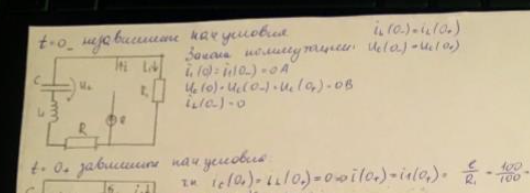 t=0_ независимые нач условия
i_L(0_)=i_L(0_+)
Законы коммутации: U_C(0_)=U_C(0_+)
i_1(0)=i_1(0_)=0 A
U_C(0)=U_C(0_)=U_C(0_+)=0 В
i_L(0_)=0
C
U_C
i
L
R
t=0_+ зависимые нач условия
i_C(0_+)=i_L(0_+)=0 => i(0_+)=i_1(0_+)= e/R_1 = 100/100